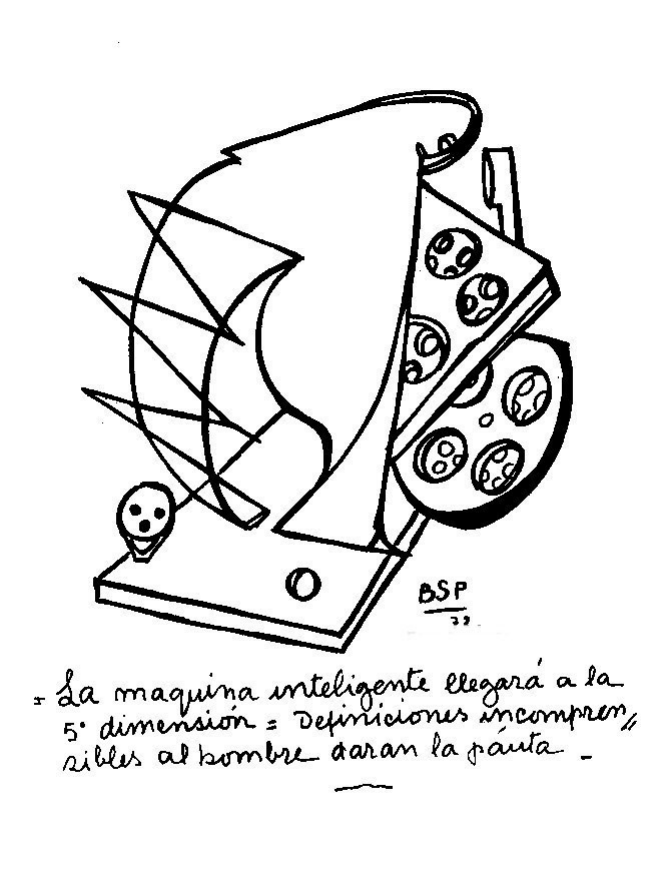 BSP
38
= La maquina inteligente llegará a la
5° dimensión = Definiciones incompren,,
sibles al hombre daran la páuta -